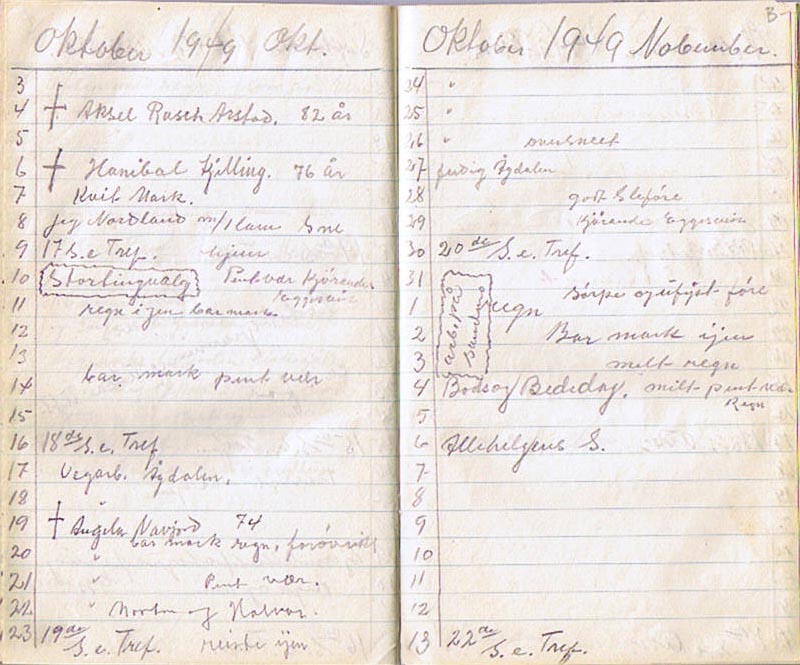 Oktober 1949 Okt.
3
4 † Aksel Rasch Arstad. 82 år
5
6 † Hanibal Kjelling. 76 år
7 Kvit Mark.
8 jeg Nordland m/1 lam Sne
9 17 S.e Tref. hjem
10 Stortingvalg Pent vær Kjörande
Eggesvin
11 regn igjen bar mark.
12
13
14 bar mark pent vær
15
16 18de S.e. Tref
17 Vegarb. Åydalen.
18 "
19 † Angela Navjord 74
20 bar mark regn,
21 " Pent vær.
22 " Morten og Halvor.
23 19de S.e. Tref. reiste ijen
B-
Oktober 1949 November.
24 "
25 "
26 " oversneet
27 ferdig Åydalen
28 godt Sleföre
29 Kjörande
30 20de S.e. Tref.
31 Sörpe og före
1 arbeid regn
2 Bar mark ijen
3 milt regn
4 Bods og Bededag, milt pent vær
Regn
5
6 Allehelgens S.
7
8
9
10
11
12
13 22de S.e. Tref.